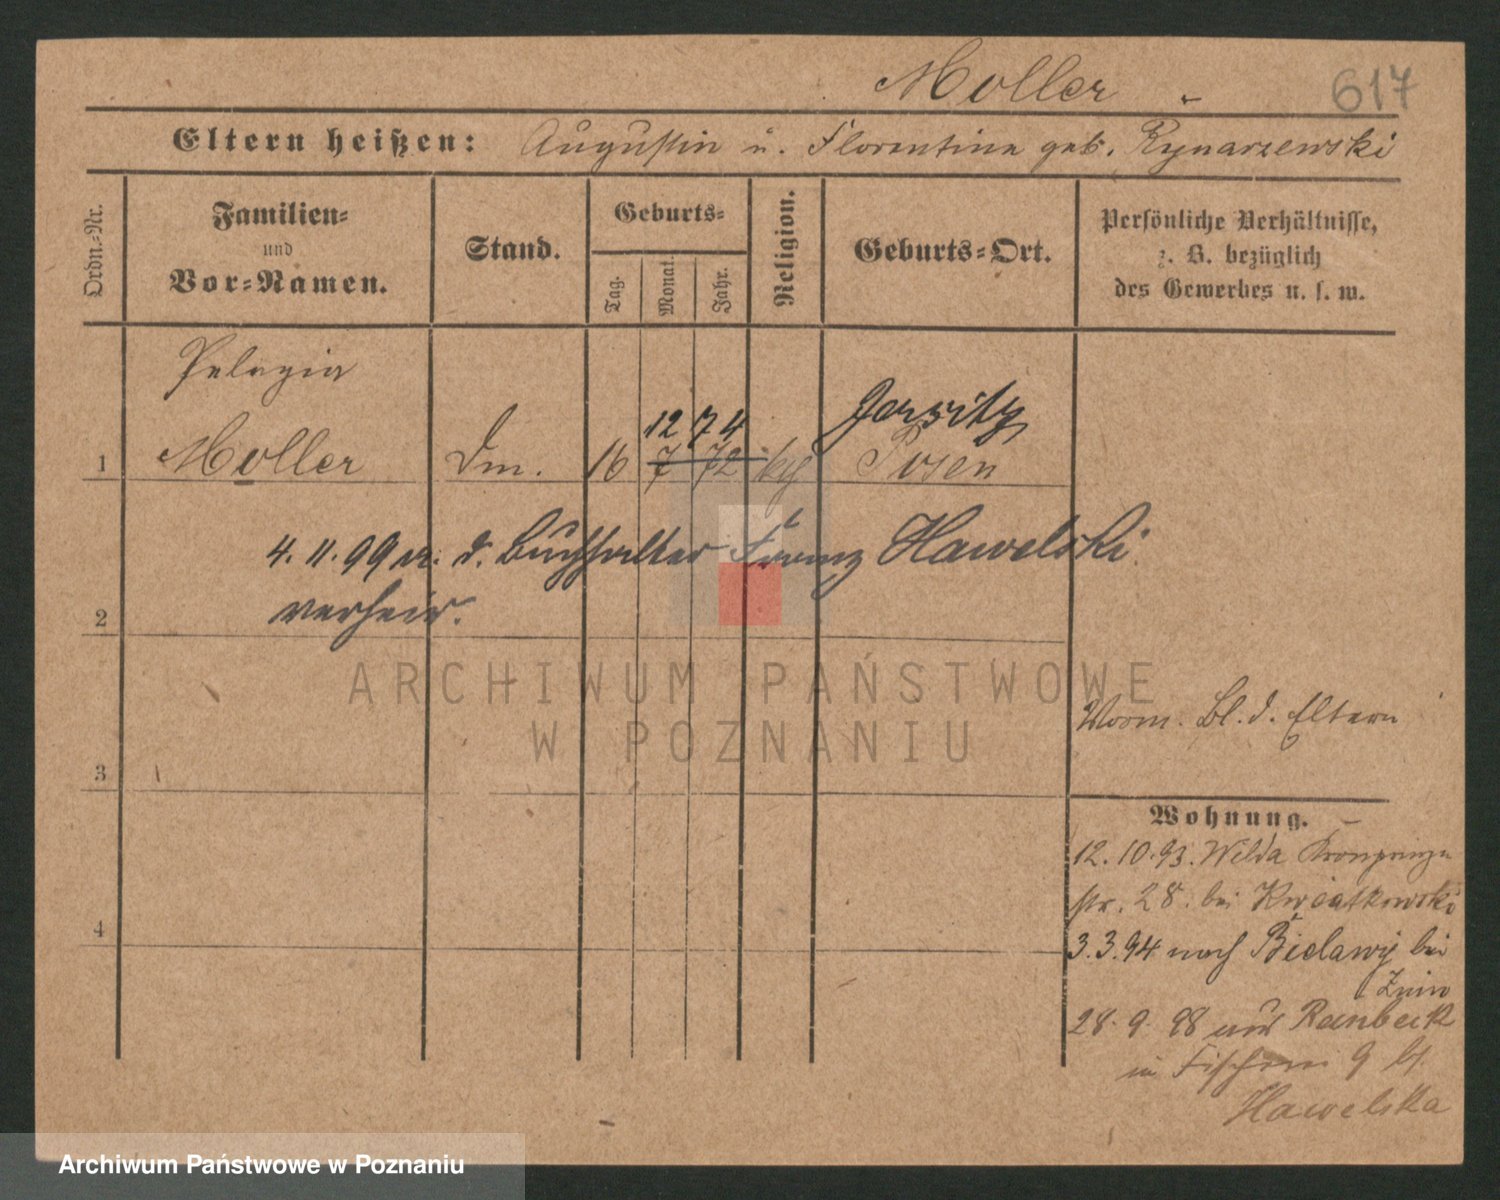 Moller
617
Eltern heißen: Augustin u. Florentine geb. Rynarzewski
Ordn.-Nr.
Familien-
und
Vor-Namen.
Stand.
Geburts-
Tag.
Monat.
Jahr.
Religion.
Geburts-Ort.
Persönliche Verhältnisse,
z. B. bezüglich
des Gewerbes u. s. w.
Pelagia
12 74 Jersitz
1 Moller Dm. 16 7 72 kg Posen
4. 11. 99 m. d. Buchhalter Franz Hawelski
verheir.
2
3
4
Vorm. Bl. d. Eltern
Wohnung.
12. 10. 93. Wilda Kronprinzen
str. 28. bei Kwiatkowski
3. 3. 94 nach Bielawy bei
Znin
28. 9. 98 aus
in Fischerei 9 bei
Hawelska
ARCHIWUM PAŃSTWOWE
W POZNANIU
Archiwum Państwowe w Poznaniu